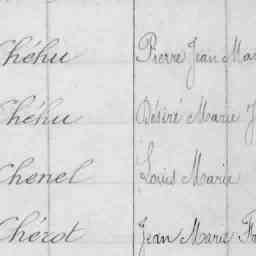 Chéhu Pierre Jean Mar
Chéhu Désiré Marie J
Chenel Louis Marie
Chérot Jean Marie Fra